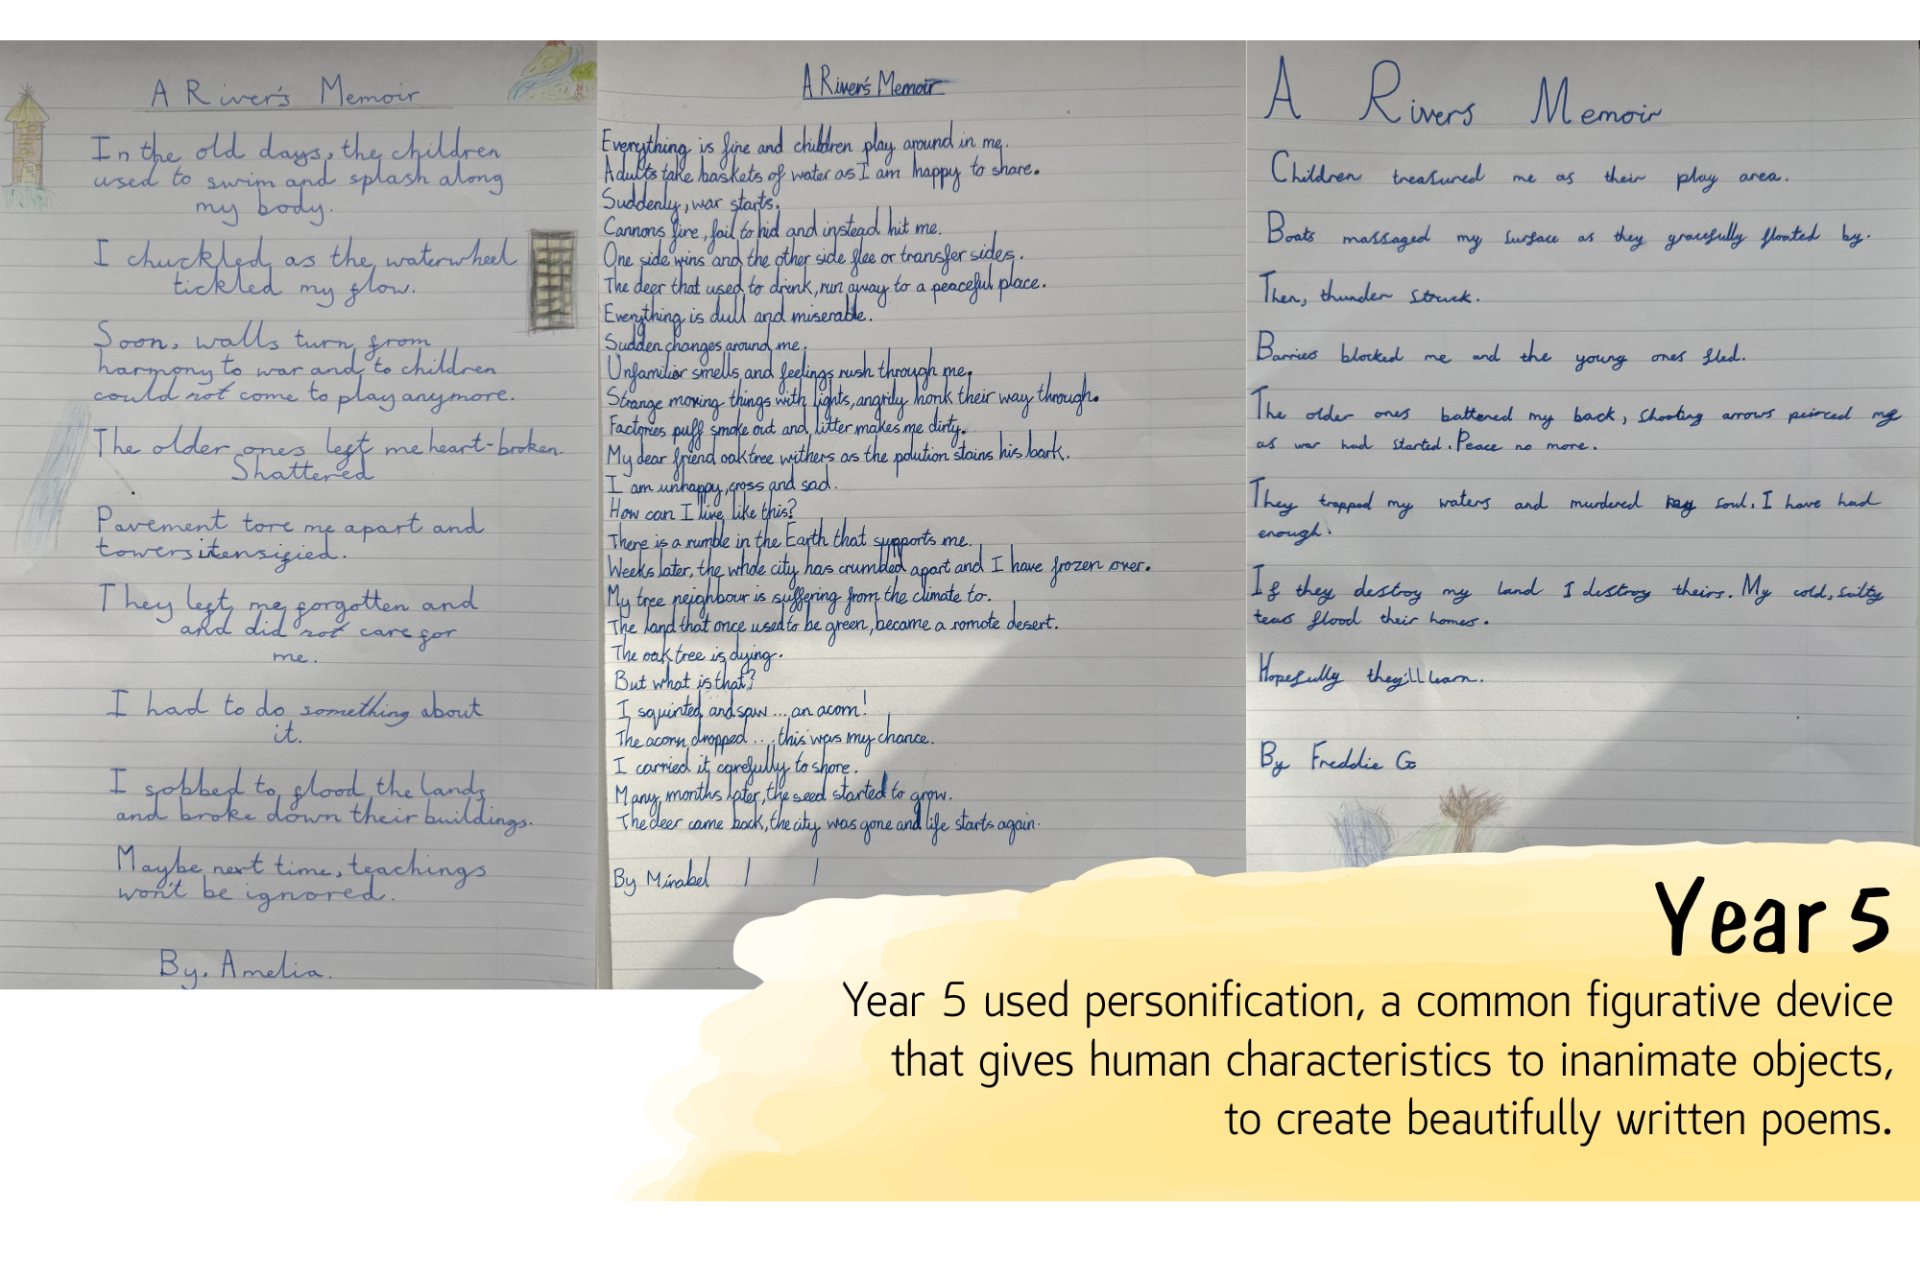 A River's Memoir
In the old days, the children
used to swim and splash along
my body.
I chuckled as the waterwheel
tickled my flow.
Soon, walls turn from
harmony to war and to children
could not come to play anymore.
The older ones left me heart-broken.
Shattered
Pavement tore me apart and
towers itensified.
They left me forgotten and
and did not care for
me.
I had to do something about
it.
I sobbed to flood the lands
and broke down their buildings.
Maybe next time, teachings
won't be ignored.
By. Amelia.
A River's Memoir
Everything is fine and children play around in me.
Adults take baskets of water as I am happy to share.
Suddenly, war starts.
Cannons fire, fail to hid and instead hit me.
One side wins and the other side flee or transfer sides.
The deer that used to drink, run away to a peaceful place.
Everything is dull and miserable.
Sudden changes around me.
Unfamilior smells and feelings rush through me.
Strange moving things with lights, angrily honk their way through.
Factories puff smoke out and litter makes me dirty.
My dear friend oak tree withers as the polution stains his bark.
I am unhappy, cross and sad.
How can I live like this?
There is a rumble in the Earth that supports me.
Weeks later, the whole city has crumbled apart and I have frozen over.
My tree neighbour is suffering from the climate to.
The land that once used to be green, became a romote desert.
The oak tree is dying.
But what is that?
I squinted and saw... an acorn!
The acorn dropped... this was my chance.
I carried it carefully to shore.
Many months later, the seed started to grow.
The deer came back, the city was gone and life starts again.
By Mirabel
A Rivers Memoir
Children treasured me as their play area.
Boats massaged my surface as they gracefully floated by.
Then, thunder struck.
Barries blocked me and the young ones fled.
The older ones battered my back, shooting arrows peirced me
as war had started. Peace no more.
They trapped my waters and murdered my soul. I have had
enough.
If they destroy my land I destroy theirs. My cold, salty
tears flood their homes.
Hopefully they'll learn.
By Freddie G
Year 5
Year 5 used personification, a common figurative device
that gives human characteristics to inanimate objects,
to create beautifully written poems.